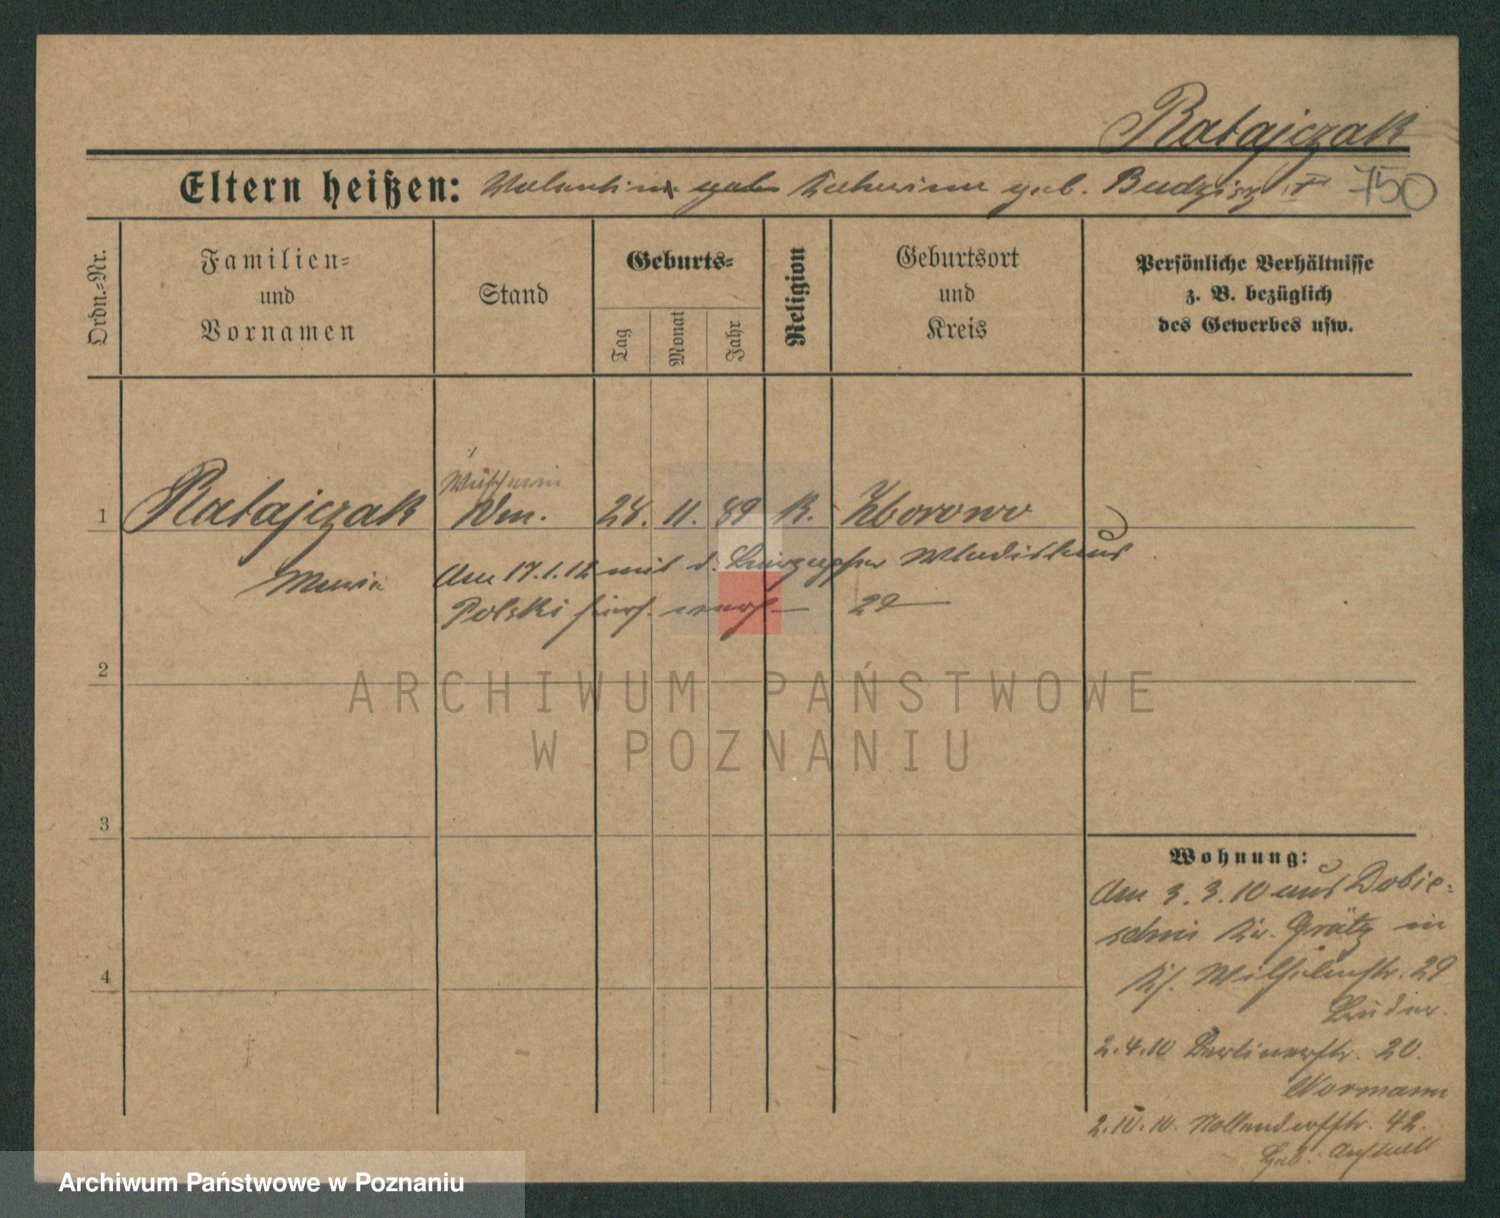 Ratajczak
Eltern heißen: Valentin geb. Budzisz
750
Ordn.-Nr.
Familien-
und
Vornamen
Stand
Geburts-
Tag
Monat
Jahr
Religion
Geburtsort
und
Kreis
Persönliche Verhältnisse
z. B. bezüglich
des Gewerbes usw.
Wäscherin
1 Ratajczak 11. 89 K. Zborowo
Maria Am 17.1.12 mit d. Wladislaus
Polski
2
3
4
ARCHIWUM PAŃSTWOWE
W POZNANIU
Wohnung:
Am 3.3.10 aus Dobie-
schin Kr. Grätz in
Wilhelmstr. 29
2.4.10 Berlinerstr. 20.
Wormann
2.IV.10. Nollendorfstr. 42.
Archiwum Państwowe w Poznaniu